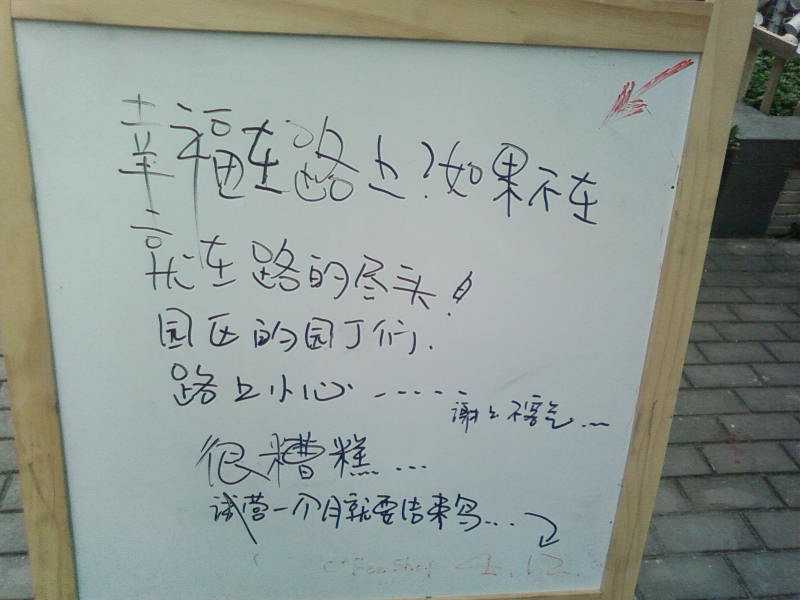 幸福在路上?如果不在
就在路的尽头!
园区的园丁们.
路上小心-----
谢谢不客气...
很糟糕...
试营一个月就要结束鸟...
coffee shop 4.12.